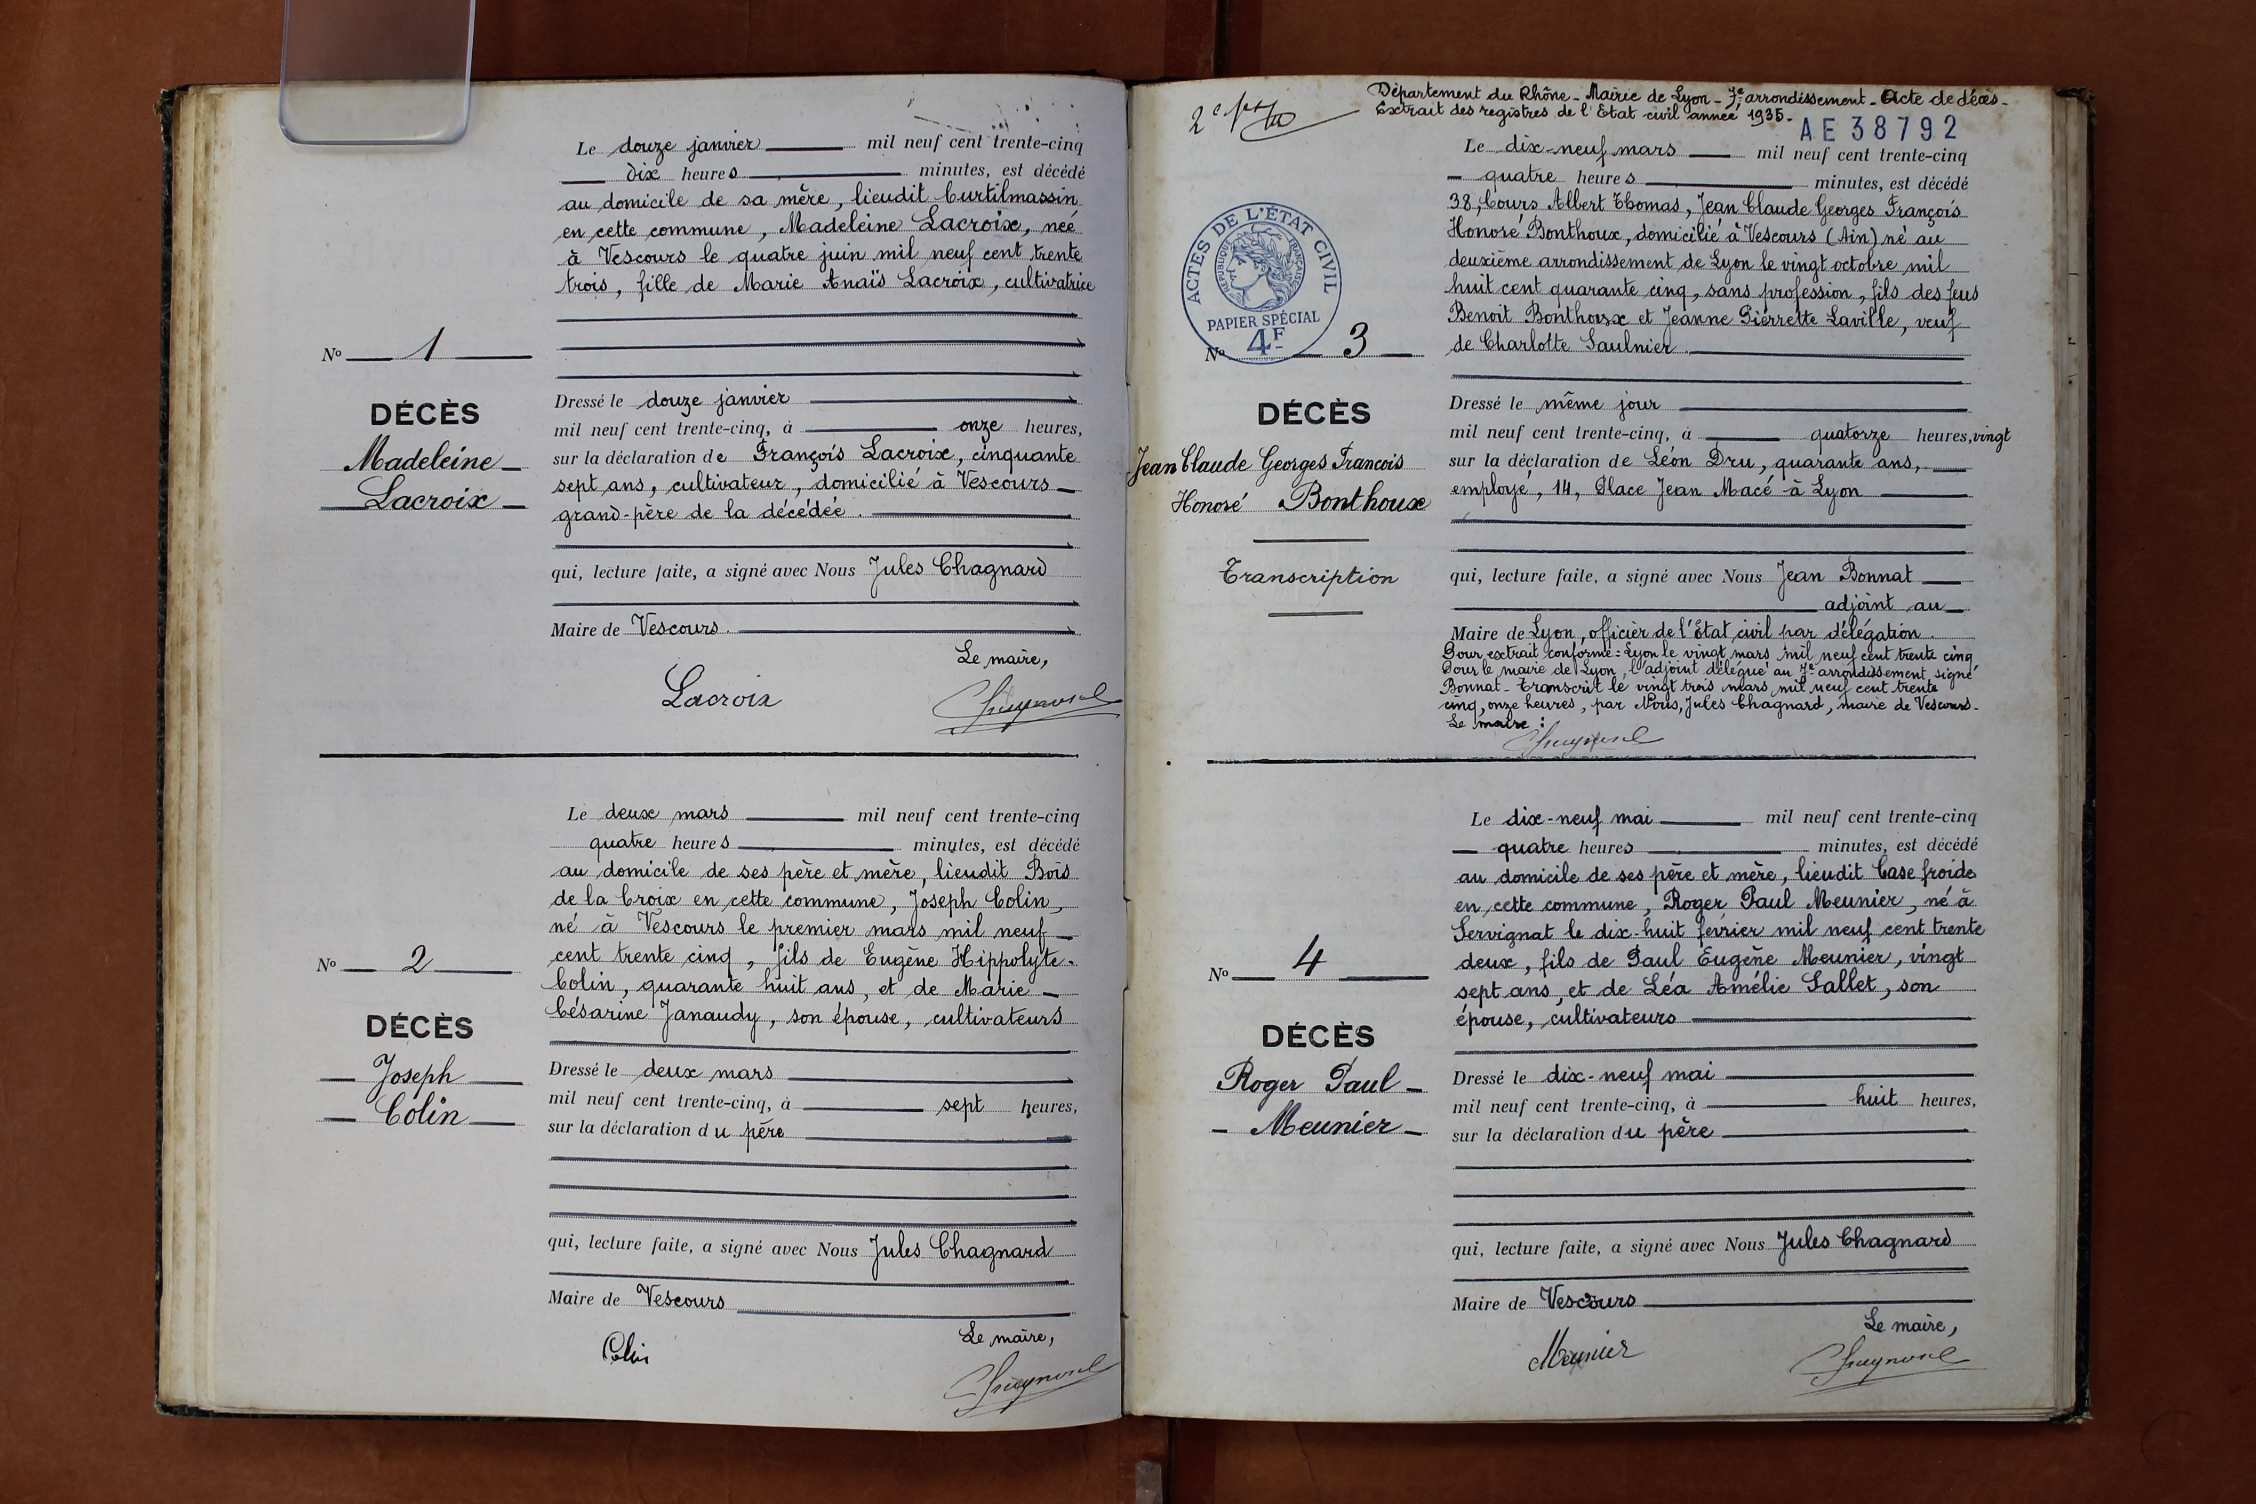 Le douze janvier mil neuf cent trente-cinq
dix heures minutes, est décédé
au domicile de sa mère, lieudit Curtilmassin
en cette commune, Madeleine Lacroix, née
à Vescours le quatre juin mil neuf cent trente
trois, fille de Marie Anaïs Lacroix, cultivatrice
No 1
DÉCÈS
Madeleine
Lacroix
Dressé le douze janvier
mil neuf cent trente-cinq, à onze heures,
sur la déclaration de François Lacroix, cinquante
sept ans, cultivateur, domicilié à Vescours
grand-père de la décédée.
qui, lecture faite, a signé avec Nous Jules Chagnard
Maire de Vescours.
Le maire,
Lacroix
Le deux mars mil neuf cent trente-cinq
quatre heures minutes, est décédé
au domicile de ses père et mère, lieudit Bois
de la Croix en cette commune, Joseph Colin,
né à Vescours le premier mars mil neuf
cent trente cinq, fils de Eugène Hippolyte
Colin, quarante huit ans, et de Marie
Césarine Janaudy, son épouse, cultivateurs
No 2
DÉCÈS
Joseph
Colin
Dressé le deux mars
mil neuf cent trente-cinq, à sept heures,
sur la déclaration du père
qui, lecture faite, a signé avec Nous Jules Chagnard
Maire de Vescours
Le maire,
Colin
Département du Rhône - Mairie de Lyon - 7e arrondissement - Acte de décès -
Extrait des registres de l'Etat civil année 1935 -
AE 38792
Le dix-neuf mars mil neuf cent trente-cinq
quatre heures minutes, est décédé
38, Cours Albert Thomas, Jean Claude Georges François
Honoré Bonthoux, domicilié à Vescours (Ain) né au
deuxième arrondissement de Lyon le vingt octobre mil
huit cent quarante cinq, sans profession, fils des feus
Benoit Bonthoux et Jeanne Pierrette Laville, veuf
de Charlotte Saulnier.
ACTES DE L'ÉTAT CIVIL
RÉPUBLIQUE FRANÇAISE
PAPIER SPÉCIAL
4F
No 3
DÉCÈS
Jean Claude Georges François
Honoré Bonthoux
Transcription
Dressé le même jour
mil neuf cent trente-cinq, à quatorze heures, vingt
sur la déclaration de Léon Dru, quarante ans,
employé, 14, Place Jean Macé à Lyon
qui, lecture faite, a signé avec Nous Jean Bonnat
adjoint au
Maire de Lyon, officier de l'Etat civil par délégation.
Pour extrait conforme : Lyon le vingt mars mil neuf cent trente cinq
Pour le maire de Lyon, l'adjoint délégué au 7e arrondissement signé
Bonnat - Transcrit le vingt trois mars mil neuf cent trente
cinq, onze heures, par Nous, Jules Chagnard, maire de Vescours.
Le maire :
Le dix-neuf mai mil neuf cent trente-cinq
quatre heures minutes, est décédé
au domicile de ses père et mère, lieudit Case froide
en cette commune, Roger Paul Meunier, né à
Servignat le dix-huit février mil neuf cent trente
deux, fils de Paul Eugène Meunier, vingt
sept ans, et de Léa Amélie Sallet, son
épouse, cultivateurs
No 4
DÉCÈS
Roger Paul
Meunier
Dressé le dix-neuf mai
mil neuf cent trente-cinq, à huit heures,
sur la déclaration du père
qui, lecture faite, a signé avec Nous Jules Chagnard
Maire de Vescours
Le maire,
Meunier